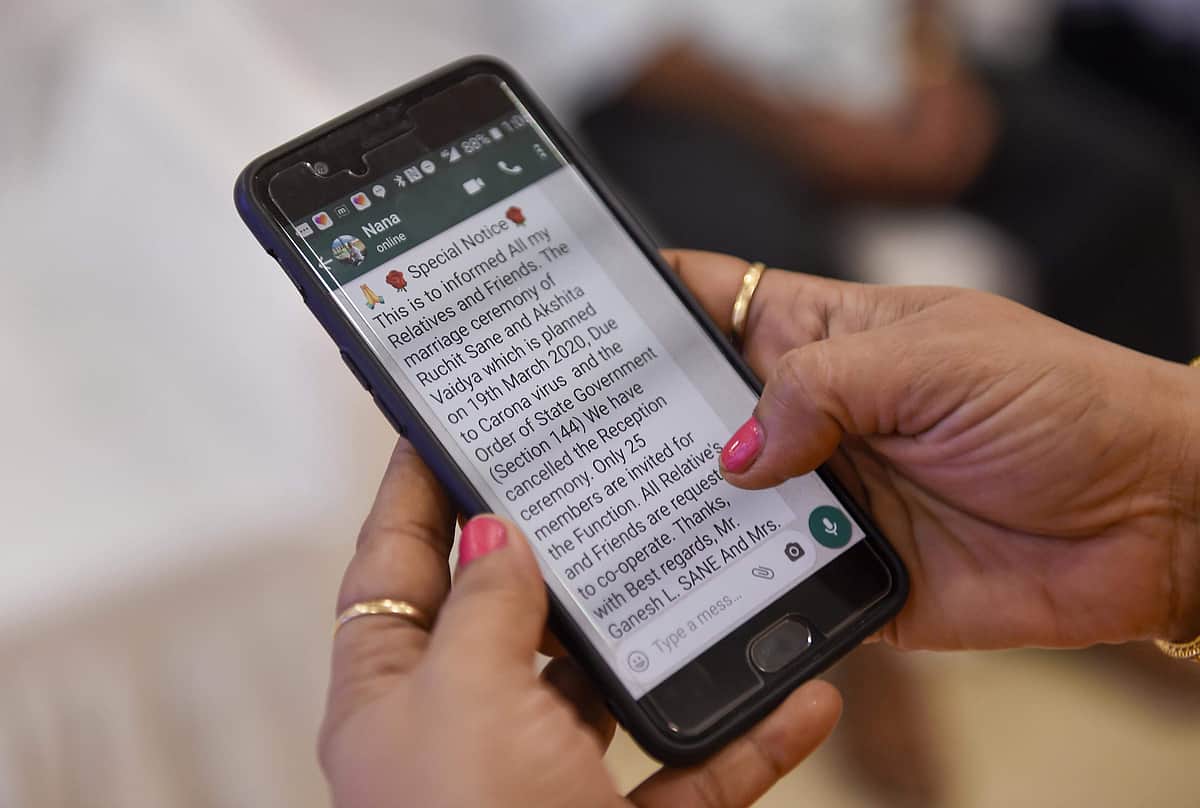 88% 1:0
Nana
online
🙏🌹 Special Notice 🌹
This is to informed All my
Relatives and Friends. The
marriage ceremony of
Ruchit Sane and Akshita
Vaidya which is planned
on 19th March 2020, Due
to Carona virus and the
Order of State Government
(Section 144) We have
cancelled the Reception
ceremony. Only 25
members are invited for
the Function. All Relative's
and Friends are request
to co-operate. Thanks,
with Best regards, Mr.
Ganesh L. SANE And Mrs.
Type a mess...